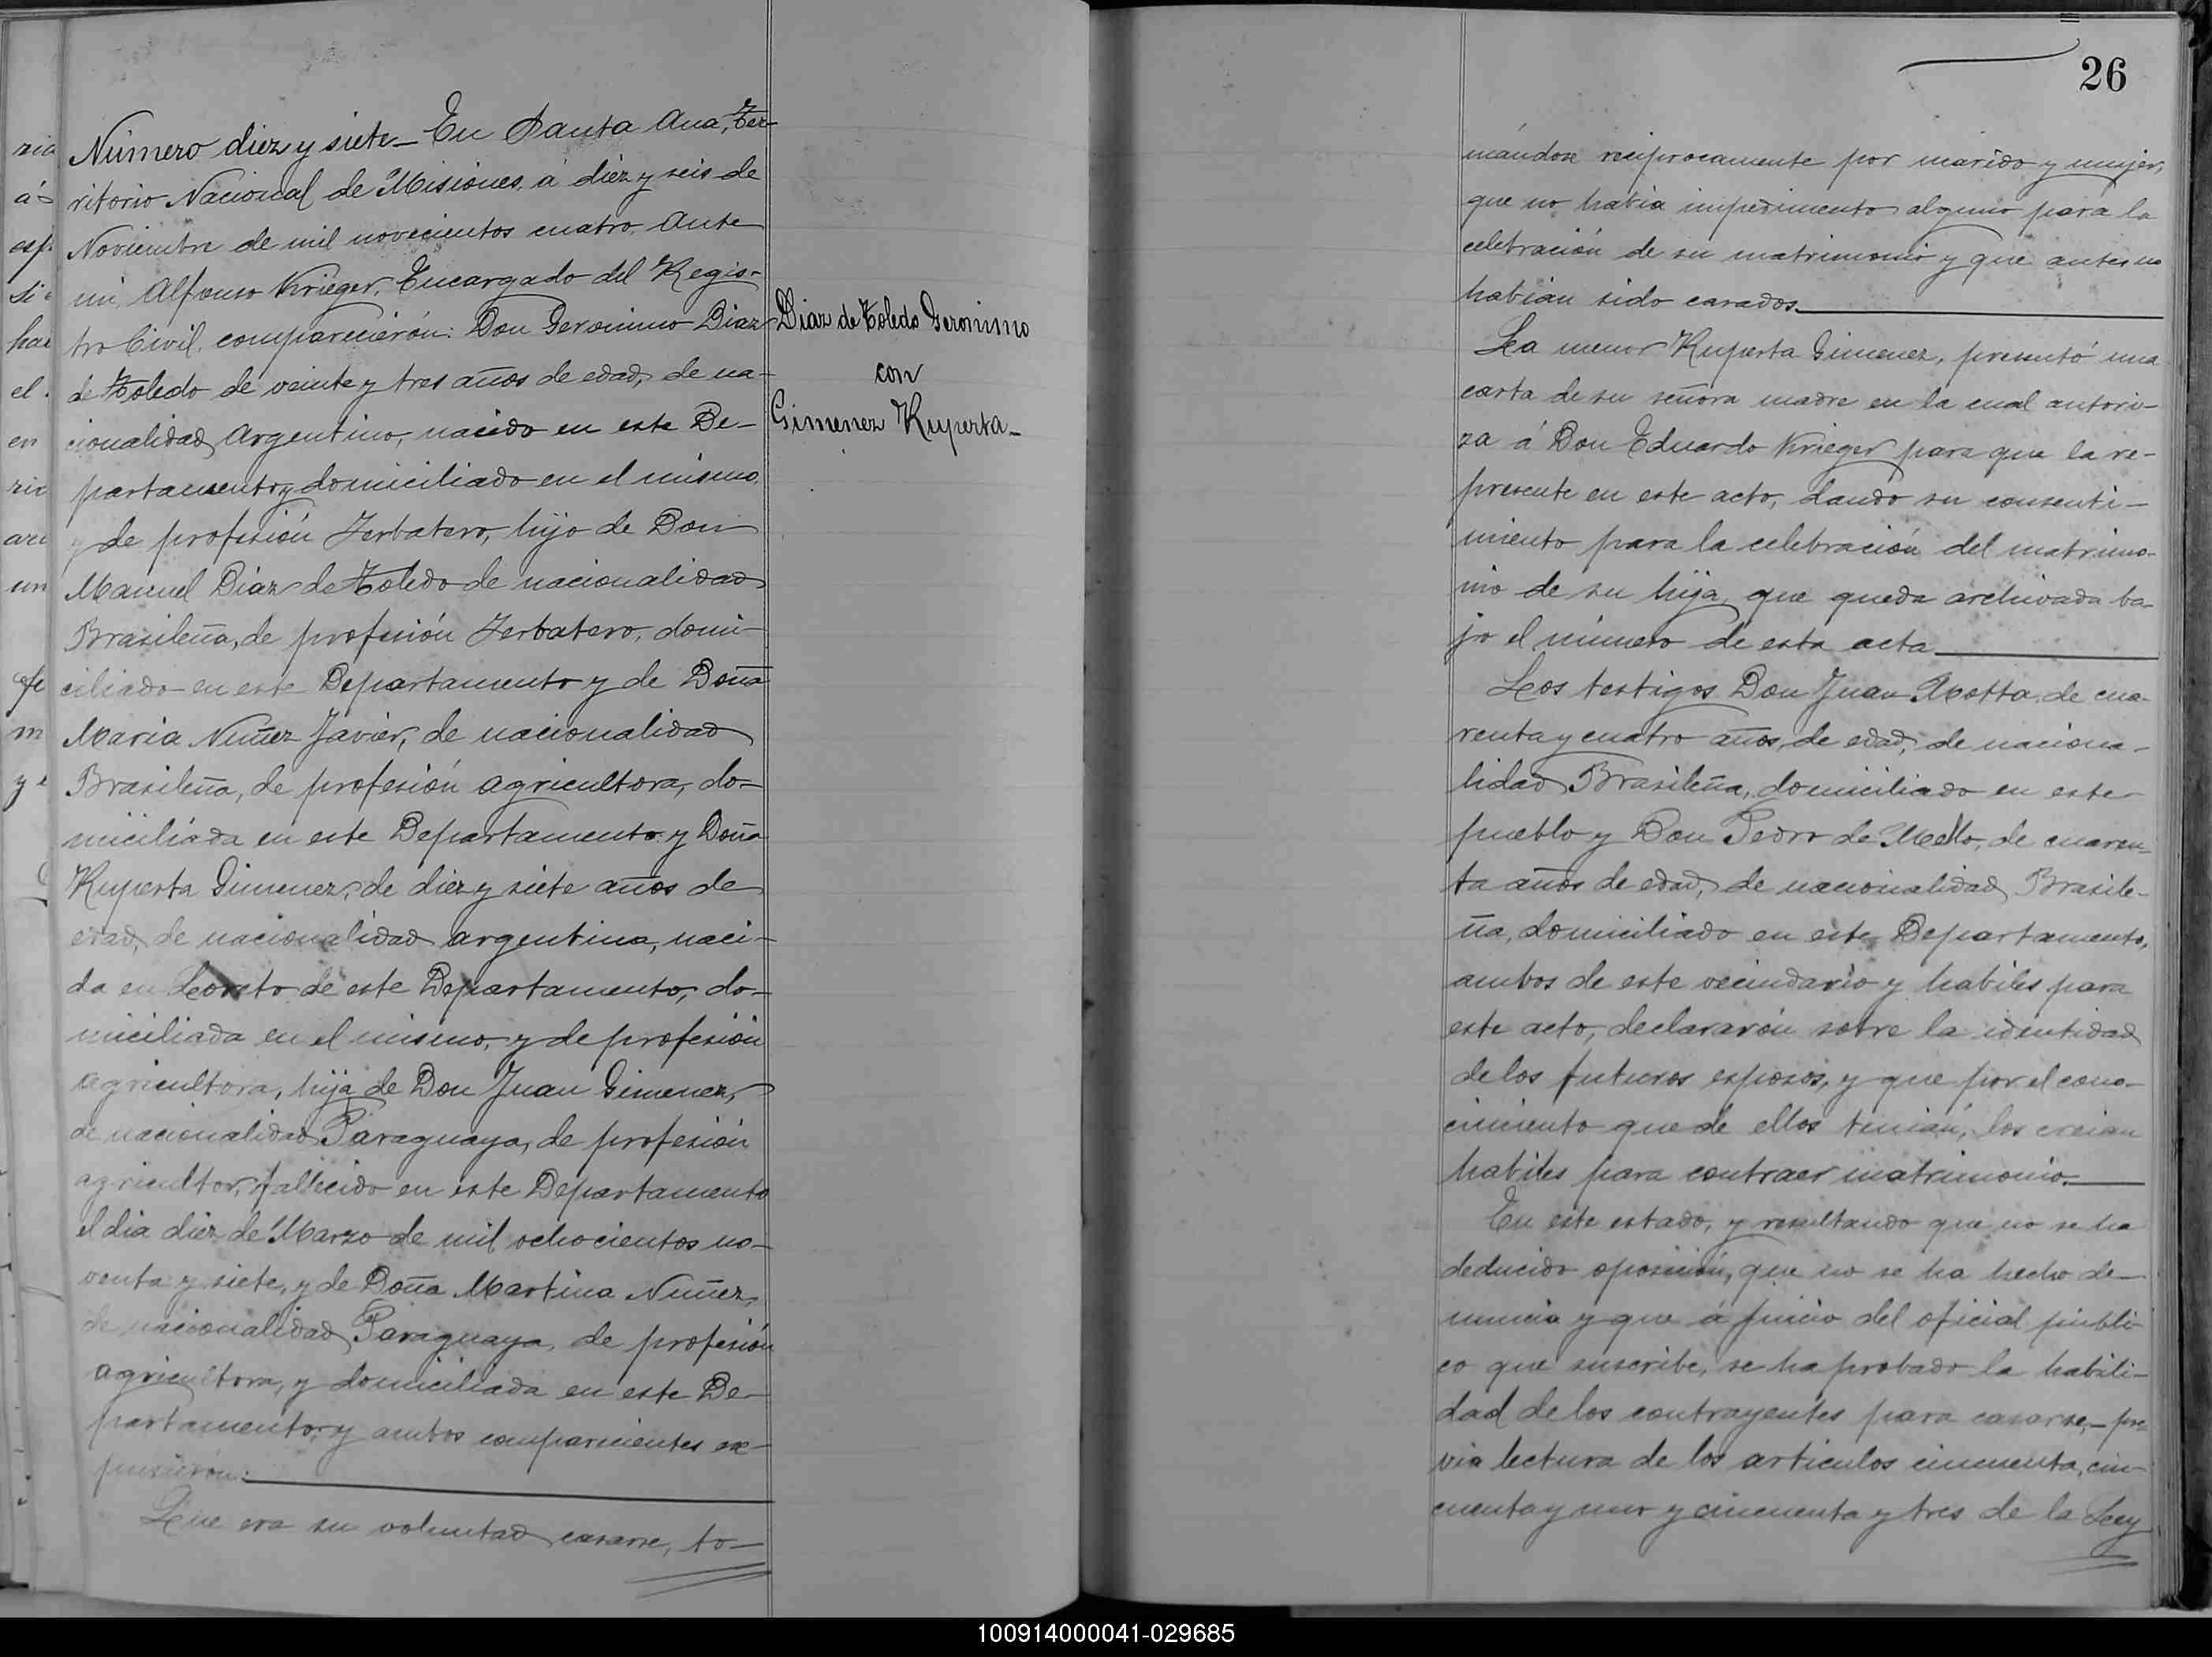 Número diez y siete_ En Santa Ana, Ter-
ritorio Nacional de Misiones, á diez y seis de
Noviembre de mil novecientos cuatro. Ante
mi, Alfonso Krieger, Encargado del Regis-
tro Civil, comparecierón: Don Geronimo Diaz
de Toledo de veinte y tres años de edad, de na-
cionalidad Argentino, nacido en este De-
partamento y domiciliado en el mismo,
y de profesión Yerbatero, hijo de Don
Manuel Diaz de Toledo de nacionalidad
Brasileña, de profesión Yerbatero, domi-
ciliado en este Departamento y de Doña
Maria Nuñez Javier, de nacionalidad
Brasileña, de profesión agricultora, do-
miciliada en este Departamento y Doña
Ruperta Gimenez, de diez y siete años de
edad, de nacionalidad argentina, naci-
da en Loreto de este Departamento, do-
miciliada en el mismo, y de profesión
agricultora, hija de Don Juan Gimenez,
de nacionalidad Paraguaya, de profesión
agricultor, fallecido en este Departamento
el dia diez de Marzo de mil ochocientos no-
venta y siete, y de Doña Martina Nuñez,
de nacionalidad Paraguaya, de profesión
agricultora, y domiciliada en este De-
partamento, y ambos comparecientes ex-
pusierón:
Que era su voluntad casarse, to-
Diaz de Toledo Geronimo
con
Gimenez Ruperta_
26
mándose reciprocamente por marido y mujer,
que no habia impedimento alguno para la
celebración de su matrimonio y que antes no
habián sido casados.
La menor Ruperta Gimenez, presentó una
carta de su señora madre en la cual autori-
za á Don Eduardo Krieger para que la re-
presente en este acto, dando su consenti-
miento para la celebración del matrimo-
nio de su hija, que queda archivada ba-
jo el número de esta acta
Los testigos Don Juan Motta, de cua-
renta y cuatro años, de edad, de naciona-
lidad Brasileña, domiciliado en este
pueblo y Don Pedro de Mello, de cuaren-
ta años de edad, de nacionalidad Brasile-
ña, domiciliado en este Departamento,
ambos de este vecindario y habiles para
este acto, declararón sobre la identidad
de los futuros esposos, y que por el cono-
cimiento que de ellos tenián, los creian
habiles para contraer matrimonio.
En este estado, y resultando que no se ha
deducido oposición, que no se ha hecho de-
nuncia y que á juicio del oficial públi-
co que suscribe, se ha probado la habili-
dad de los contrayentes para casarse,_ pre-
via lectura de los articulos cincuenta, cin-
cuenta y uno y cincuenta y tres de la Ley
100914000041-029685